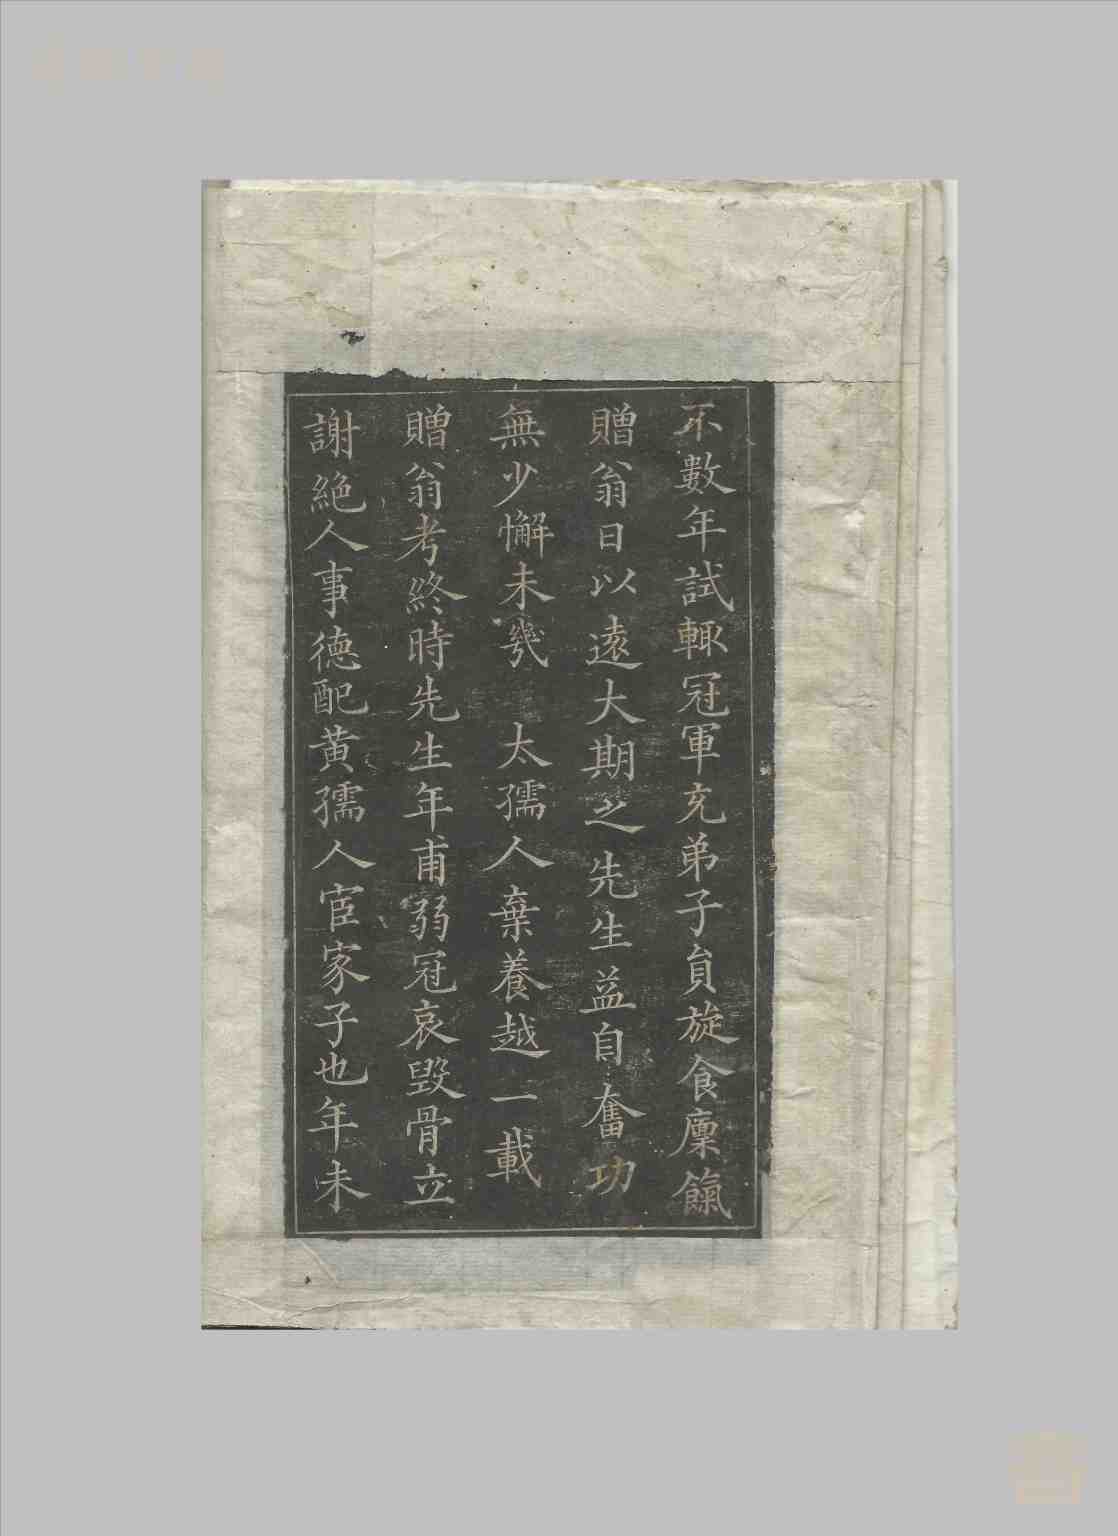 不數年試輒冠軍充弟子員旋食廩餼
贈翁日以遠大期之先生益自奮功
無少懈未幾　太孺人棄養越一載
贈翁考終時先生年甫弱冠哀毀骨立
謝絕人事德配黃孺人宦家子也年未